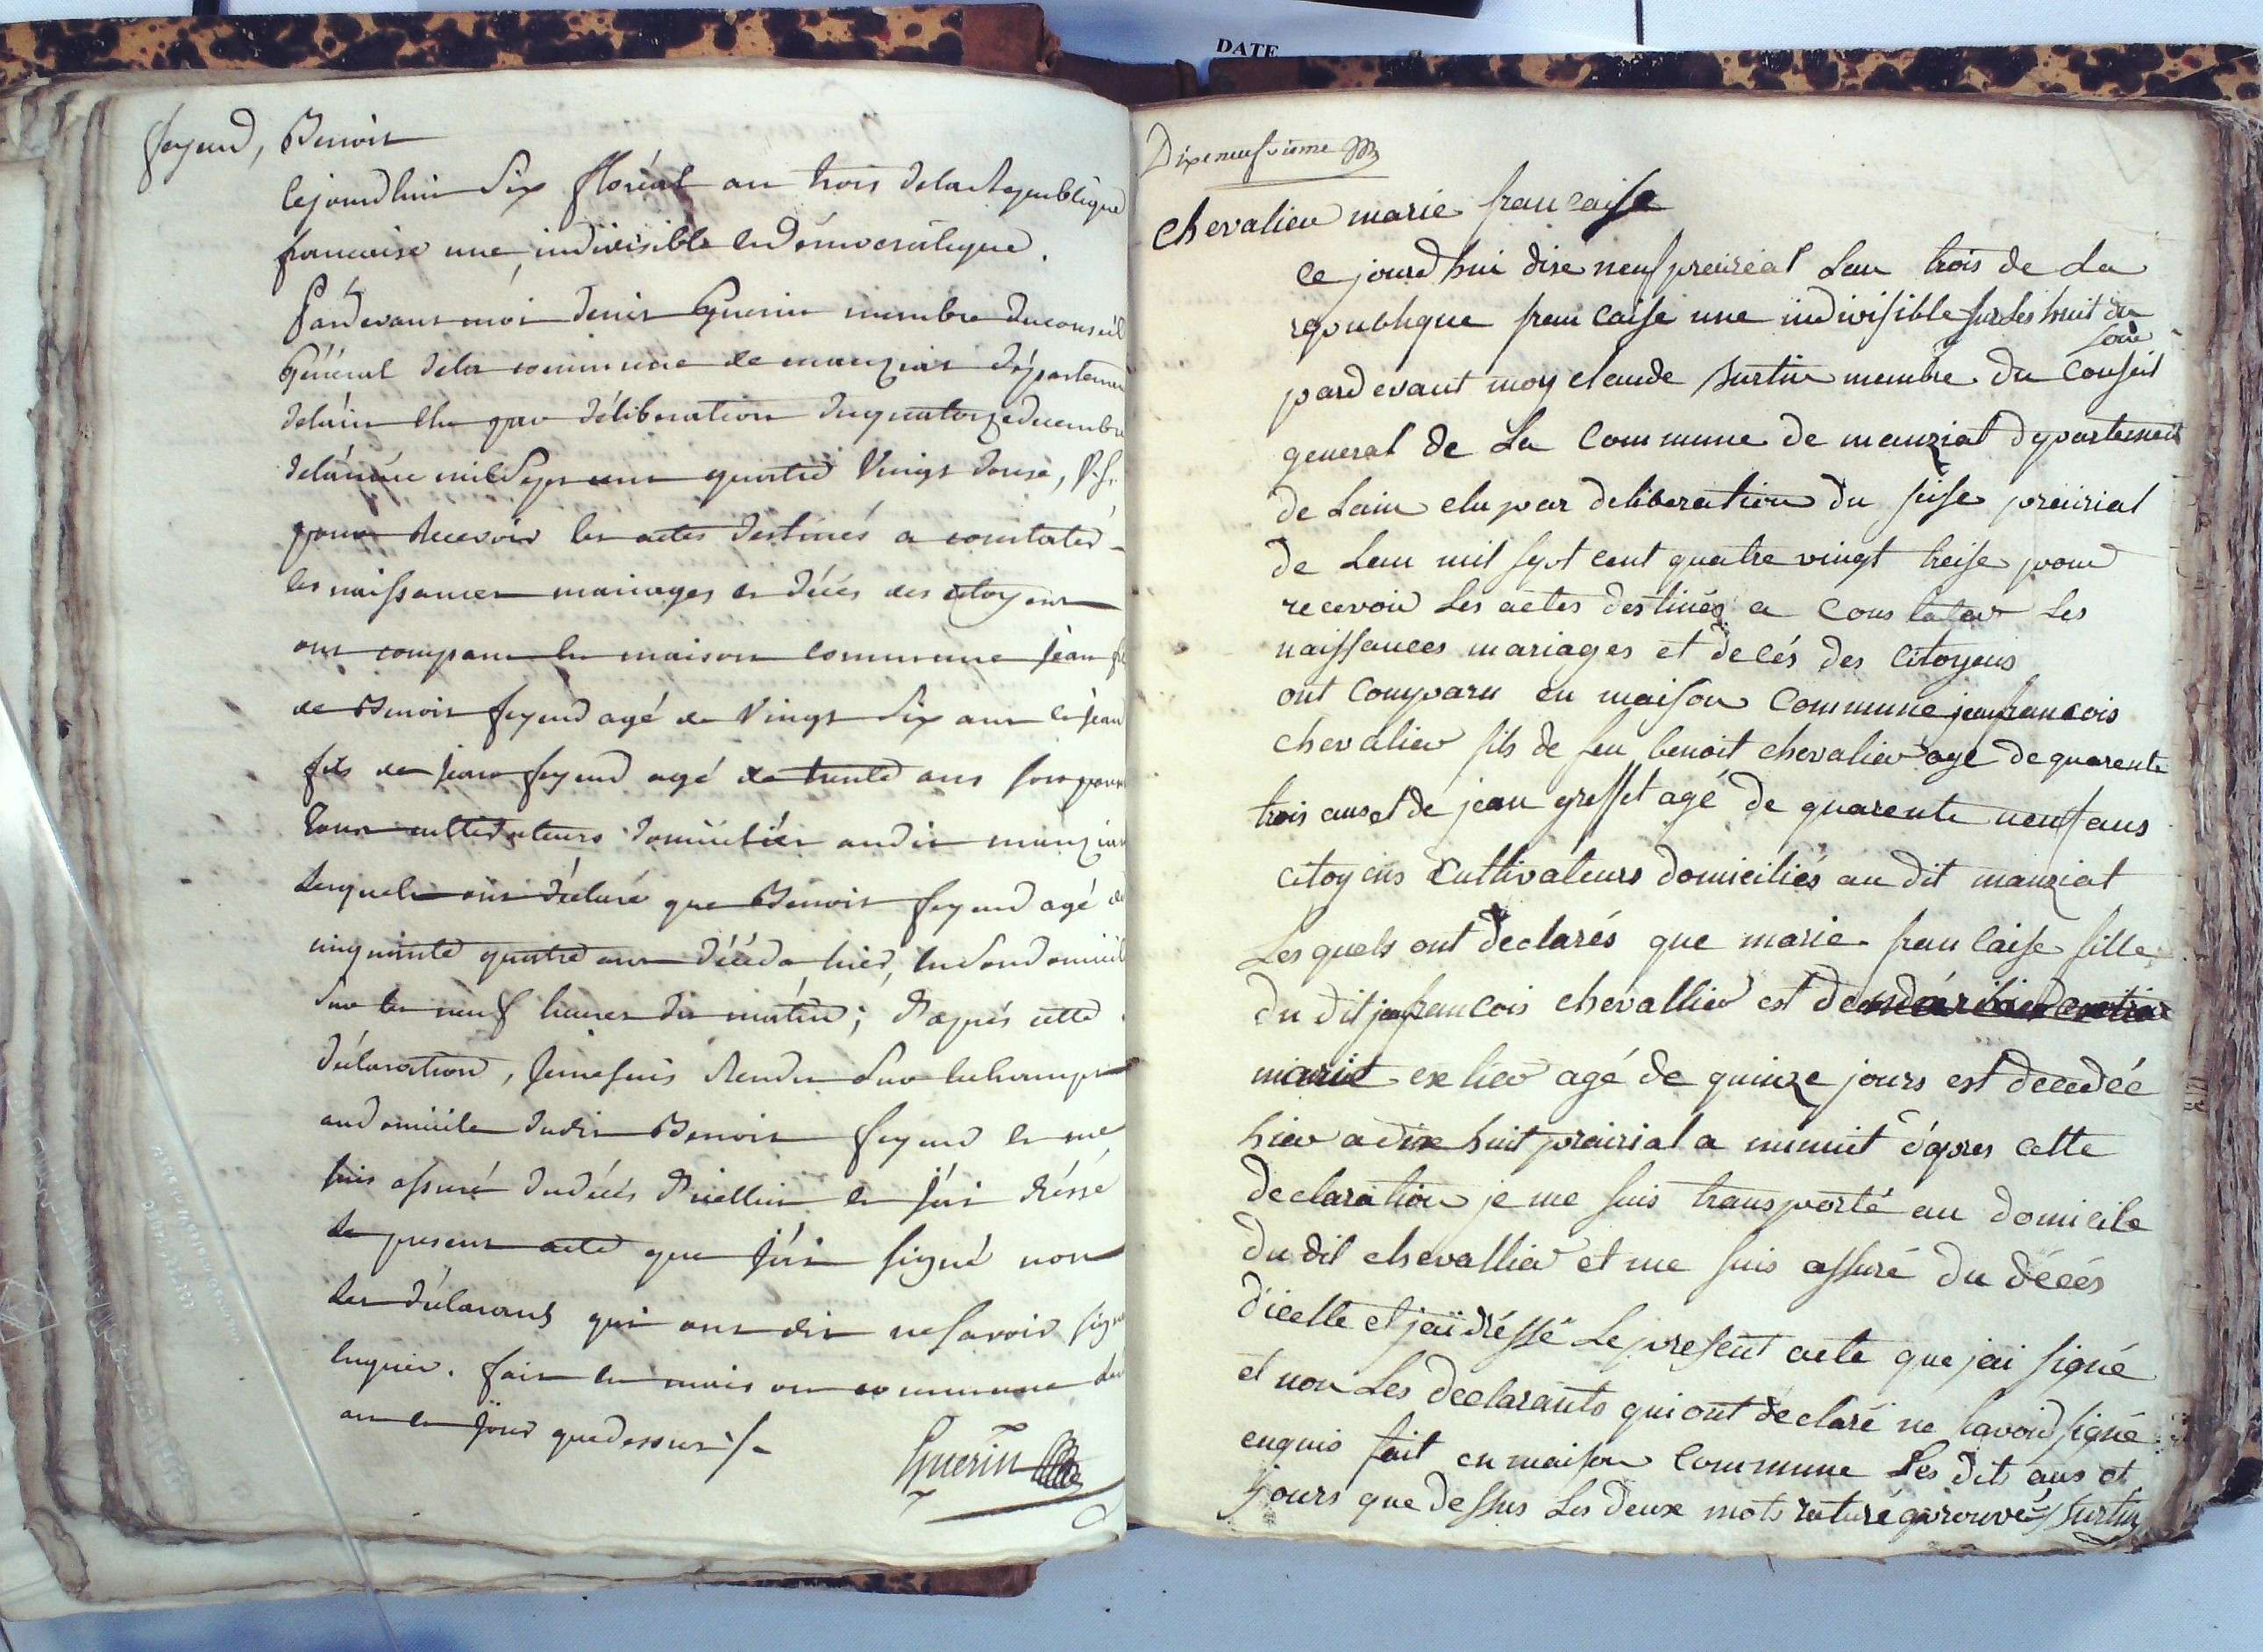 DATE
feyeud, Benoit
Cejourdhui Six floréal an trois de la Republique
francoise une, indivisible et démocratique.
Pardevant moi denis Guerin membre du conseil
Général de la commune de manziat département
de l'ain élu par déliberation du quatorze décembre
de l'année mil Sept cent quatre Vingt douze, V.S.
pour Recevoir les actes destinés a constater
les naissances mariages et décés des citoyens
ont comparu en maison commune jean fils
de Benoit feyeud agé de Vingt Six ans et jean
fils de jean feyeud agé de trente ans
tous cultivateurs domiciliés audit manziat
lesquels ont déclaré que Benoit feyeud agé de
cinquante quatre ans décéda hier, en son domicile
sur les neuf heures du matin; d'aprés cette
déclaration, je me suis Rendu Sur le champ
au domicile dudit Benoit feyeud et me
suis assuré du décés d'icelluy et j'ai dréssé
le present acte que j'ai signé non
les déclarants qui ont dit ne savoir signer
enquis. fait en maison commune les
an et jour que dessus ./.
Guerin
Dixeneufvieme
chevalier marie francaise
ce jourd'hui dixe neuf preireal Lan trois de La
republique francaise une indivisible sur Les huit du
soir
pardevant moy claude surtin membre du Conseil
general de La Commune de manziat departement
de Lain elu par deliberation du seise preirial
de Lan mil sept cent quatre vingt treise pour
recevoir Les actes destinés a Constater Les
naissances mariages et decés des Citoyens
ont Comparu en maison Commune jean francois
chevalier fils de feu benoit chevalier agé de quarente
trois ans et de jean greffet agé de quarente neuf ans
citoyens Cultivateurs domiciliés au dit manziat
Les quels ont declarés que marie francaise fille
du dit jean francois chevallier est
agé de quinze jours est decedée
hier a dixe huit preirial a minuit d'apres cette
declaration je me suis transporté au domicile
du dit chevallier et me suis assuré du décés
d'icelle et jai dréssé Le present acte que jai signé
et non Les declarants qui ont declaré ne savoir signé
enquis fait en maison Commune Les dits ans et
jours que dessus Les deuxe mots raturé aprouvé surtin